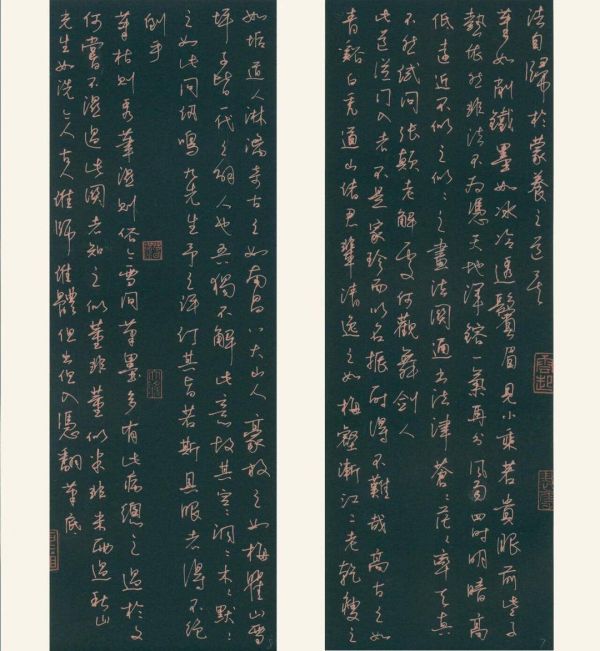 法自歸於蒙養之道矣
筆如削鐵墨如冰冷透鬢眉見小乘若貴眼前些子
熱依然非法不為憑天地渾鎔一氣再分風雨四時明暗高
低遠近不似之似〻之畫法關通書法津蒼〻茫〻率天真
不然試問張顛老解處何觀舞劍人
此道從門入者不是家珍而以名振時得不難哉高古之如
青谿白禿道山諸君輩清逸之如梅壑漸江二老乾瘦之
如垢道人淋漓奇古之如南昌八大山人豪放之如梅瞿山雪
坪子皆一代之解人也吾獨不解此意故其空〻洞〻木〻默〻
之如此問訊鳴六先生予之其旨若斯具眼者得不絕
倒乎
筆枯則秀筆濕則俗今雲間筆墨多有此病總之過於文
何嘗不濕過此關者知之似董非董似米非米雨過秋山
光生如洗今人古人誰師誰體但出但入憑翻筆底